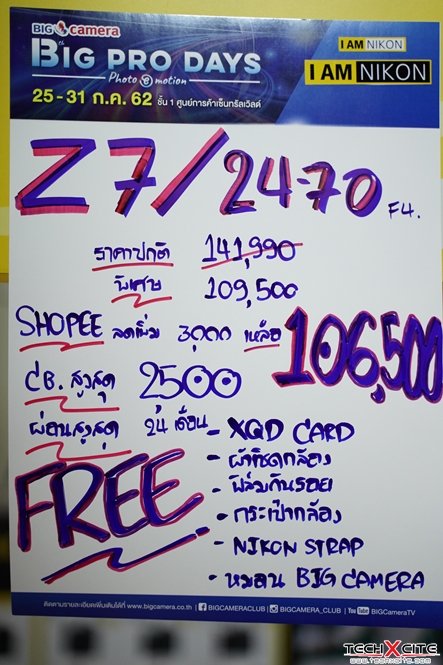 BIG Camera
BIG PRO DAYS
7th
Photo e motion
25-31 ก.ค. 62 ชั้น 1 ศูนย์การค้าเซ็นทรัลเวิลด์
I AM NIKON
I AM NIKON
Z7/24-70 F4.
ราคาปกติ 141,990
พิเศษ 109,500
SHOPEE ลดเพิ่ม 3,000 เหลือ 106,500
CB. สูงสุด 2,500
ผ่อนสูงสุด 24 เดือน
FREE
- XQD CARD
- ผ้าเช็ดกล้อง
- ฟิล์มกันรอย
- กระเป๋ากล้อง
- NIKON STRAP
- หมอน BIG CAMERA
ติดตามรายละเอียดเพิ่มเติมได้ที่ www.bigcamera.co.th | BIGCAMERACLUB | BIGCAMERA_CLUB | You Tube BIGCameraTV
TECHXCITE
www.techxcite.com